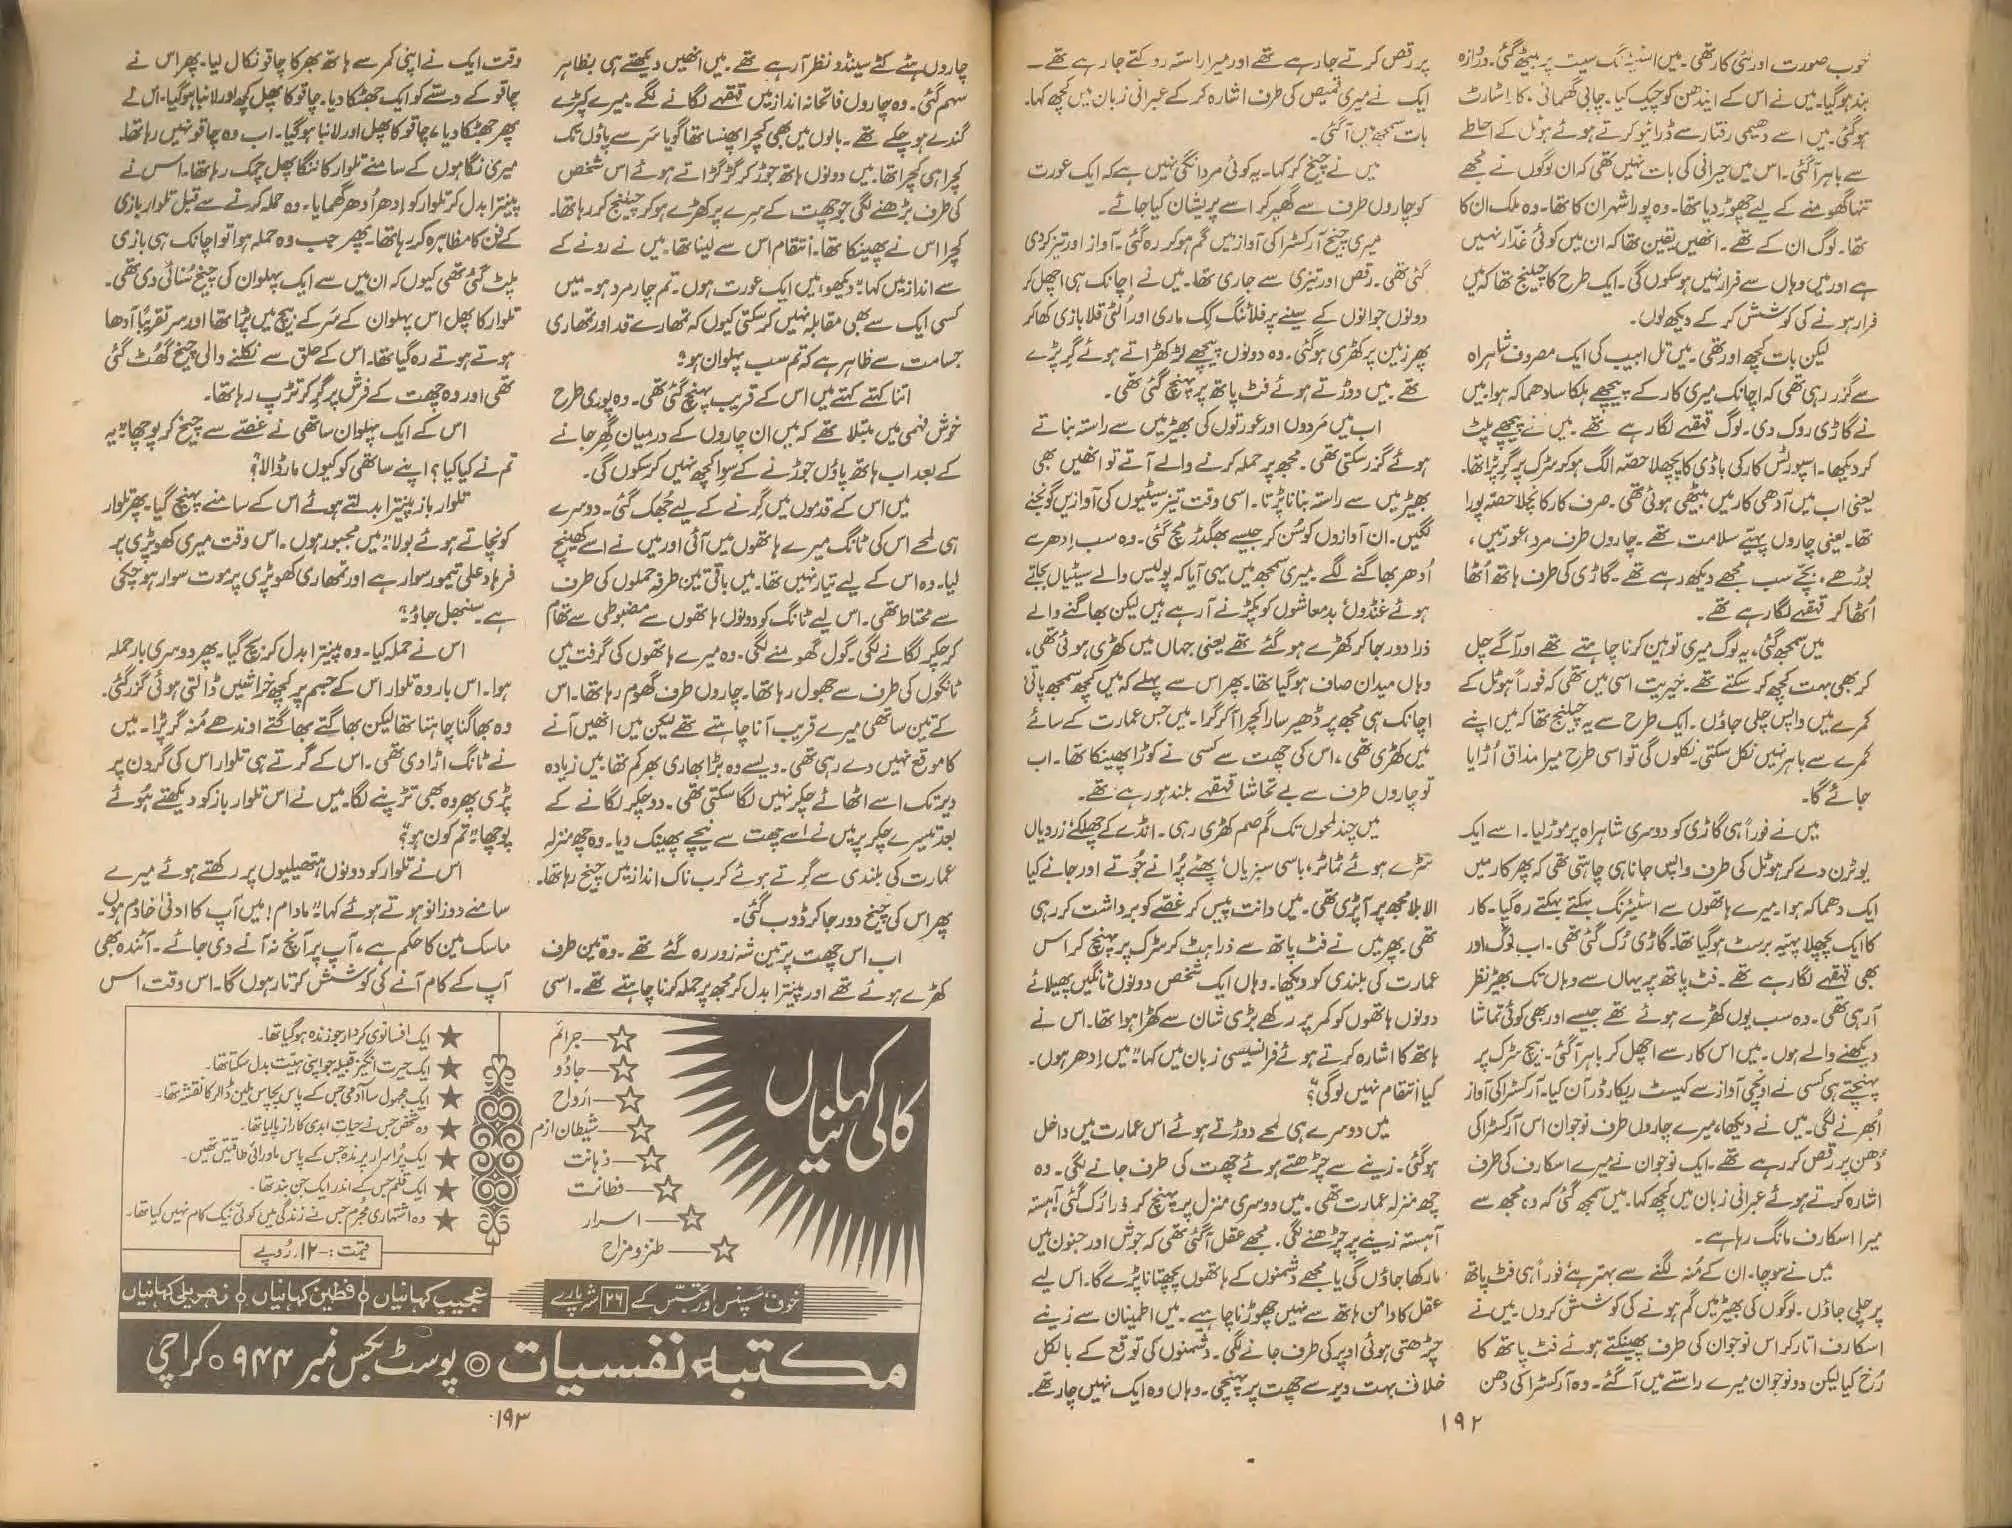 خوب صورت اور نئی کار تھی۔ میں اسٹیئرنگ سیٹ پر بیٹھ گئی۔ دروازہ
بند ہوگیا۔ میں نے اس کے ایندھن کو چیک کیا۔ چابی گھمائی۔ کار اسٹارٹ
ہوگئی۔ میں اسے دھیمی رفتار سے ڈرائیو کرتے ہوئے ہوٹل کے احاطے
سے باہر آگئی۔ اس میں حیرانی کی بات نہیں تھی کہ ان لوگوں نے مجھے
تنہا گھومنے کے لیے چھوڑ دیا تھا۔ وہ پورا شہر ان کا تھا۔ وہ ملک ان کا
تھا۔ لوگ ان کے تھے۔ انھیں یقین تھا کہ ان میں کوئی غدّار نہیں
ہے اور میں وہاں سے فرار نہیں ہوسکوں گی۔ ایک طرح کا چیلنج تھا کہ میں
فرار ہونے کی کوشش کرکے دیکھ لوں۔
لیکن بات کچھ اور تھی۔ میں تل ابیب کی ایک مصروف شاہراہ
سے گزر رہی تھی کہ اچانک میری کار کے پیچھے ہلکا سا دھماکہ ہوا۔ میں
نے گاڑی روک دی۔ لوگ قہقہے لگا رہے تھے۔ میں نے پیچھے پلٹ
کر دیکھا۔ اسپورٹس کار کی باڈی کا پچھلا حصّہ الگ ہوکر سڑک پر گر پڑا تھا۔
یعنی اب میں آدھی کار میں بیٹھی ہوئی تھی۔ صرف کار کا نچلا حصّہ پورا
تھا۔ یعنی چاروں پہیّے سلامت تھے۔ چاروں طرف مرد، عورتیں،
بوڑھے، بچّے سب مجھے دیکھ رہے تھے۔ گاڑی کی طرف ہاتھ اُٹھا
اُٹھا کر قہقہے لگا رہے تھے۔
میں سمجھ گئی، یہ لوگ میری توہین کرنا چاہتے تھے اور آگے چل
کر بھی بہت کچھ کرسکتے تھے۔ خیریت اسی میں تھی کہ فوراً ہوٹل کے
کمرے میں واپس چلی جاؤں۔ ایک طرح سے یہ چیلنج تھا کہ میں اپنے
کمرے سے باہر نہیں نکل سکتی۔ نکلوں گی تو اسی طرح میرا مذاق اُڑایا
جائے گا۔
میں نے فوراً ہی گاڑی کو دوسری شاہراہ پر موڑ لیا۔ اسے ایک
یوٹرن دے کر ہوٹل کی طرف واپس جانا ہی چاہتی تھی کہ پھر کار میں
ایک دھماکہ ہوا۔ میرے ہاتھوں سے اسٹیئرنگ بہکتے بہکتے رہ گیا۔ کار
کا ایک پچھلا پہیّہ برسٹ ہوگیا تھا۔ گاڑی رُک گئی تھی۔ اب لوگ اور
بھی قہقہے لگا رہے تھے۔ فٹ پاتھ پر یہاں سے وہاں تک بھیڑ نظر
آرہی تھی۔ وہ سب یوں کھڑے ہوئے تھے جیسے اور بھی کوئی تماشا
دیکھنے والے ہوں۔ میں اس کار سے اچھل کر باہر آگئی۔ بیچ سڑک پر
پہنچتے ہی کسی نے اونچی آواز سے کیسٹ ریکارڈر آن کیا۔ آرکسٹرا کی آواز
اُبھرنے لگی۔ میں نے دیکھا، میرے چاروں طرف نوجوان اس آرکسٹرا کی
دُھن پر رقص کررہے تھے۔ ایک نوجوان نے میرے اسکارف کی طرف
اشارہ کرتے ہوئے عبرانی زبان میں کچھ کہا۔ میں سمجھ گئی کہ وہ مجھ سے
میرا اسکارف مانگ رہا ہے۔
میں نے سوچا۔ ان کے مُنہ لگنے سے بہتر ہے فوراً ہی فٹ پاتھ
پر چلی جاؤں۔ لوگوں کی بھیڑ میں گم ہونے کی کوشش کروں۔ میں نے
اسکارف اتار کر اس نوجوان کی طرف پھینکتے ہوئے فٹ پاتھ کا
رُخ کیا لیکن دو نوجوان میرے راستے میں آگئے۔ وہ آرکسٹرا کی دھن
پر رقص کرتے جارہے تھے اور میرا راستہ روکتے جارہے تھے۔
ایک نے میری قمیص کی طرف اشارہ کرکے عبرانی زبان میں کچھ کہا۔
بات سمجھ میں آگئی۔
میں نے چیخ کر کہا۔ یہ کوئی مردانگی نہیں ہے کہ ایک عورت
کو چاروں طرف سے گھیر کر اسے پریشان کیا جائے۔
میری چیخ آرکسٹرا کی آواز میں گم ہوکر رہ گئی۔ آواز اور تیز کردی
گئی تھی۔ رقص اور تیزی سے جاری تھا۔ میں نے اچانک ہی اچھل کر
دونوں جوانوں کے سینے پر فلائنگ کِک ماری اور اُلٹی قلابازی کھا کر
پھر زمین پر کھڑی ہوگئی۔ وہ دونوں پیچھے لڑکھڑاتے ہوئے گر پڑے
تھے۔ میں دوڑتے ہوئے فٹ پاتھ پر پہنچ گئی تھی۔
اب میں مَردوں اور عورتوں کی بھیڑ میں سے راستہ بناتے
ہوئے گزر سکتی تھی۔ مجھ پر حملہ کرنے والے آتے تو انھیں بھی
بھیڑ میں سے راستہ بنانا پڑتا۔ اسی وقت تیز سیٹیوں کی آوازیں گونجنے
لگیں۔ ان آوازوں کو سُن کر جیسے بھگدڑ مچ گئی۔ وہ سب اِدھر سے
اُدھر بھاگنے لگے۔ میری سمجھ میں یہی آیا کہ پولیس والے سیٹیاں بجاتے
ہوئے غنڈوں بدمعاشوں کو پکڑنے آرہے ہیں لیکن بھاگنے والے
ذرا دور جاکر کھڑے ہوگئے تھے یعنی جہاں میں کھڑی ہوئی تھی،
وہاں میدان صاف ہوگیا تھا۔ پھر اس سے پہلے کہ میں کچھ سمجھ پاتی
اچانک ہی مجھ پر ڈھیر سارا کچرا آکر گرا۔ میں جس عمارت کے سائے
میں کھڑی تھی، اس کی چھت سے کسی نے کوڑا پھینکا تھا۔ اب
تو چاروں طرف سے بے تحاشا قہقہے بلند ہورہے تھے۔
میں چند لمحوں تک گم صم کھڑی رہی۔ انڈے کے چھلکے، زردیاں
سڑے ہوئے ٹماٹر، باسی سبزیاں، پھٹے پُرانے جُوتے اور جانے کیا
الا بلا مجھ پر آپڑی تھی۔ میں دانت پیس کر غصّے کو برداشت کررہی
تھی پھر میں نے فٹ پاتھ سے ذرا ہٹ کر سڑک پر پہنچ کر اس
عمارت کی بلندی کو دیکھا۔ وہاں ایک شخص دونوں ٹانگیں پھیلائے
دونوں ہاتھوں کو کمر پر رکھے بڑی شان سے کھڑا ہوا تھا۔ اس نے
ہاتھ کا اشارہ کرتے ہوئے فرانسیسی زبان میں کہا "میں اِدھر ہوں۔
کیا انتقام نہیں لوگی؟"
میں دوسرے ہی لمحے دوڑتے ہوئے اس عمارت میں داخل
ہوگئی۔ زینے سے چڑھتے ہوئے چھت کی طرف جانے لگی۔ وہ
چھ منزلہ عمارت تھی۔ میں دوسری منزل پر پہنچ کر ذرا رُک گئی آہستہ
آہستہ زینے پر چڑھنے لگی۔ مجھے عقل آگئی تھی کہ جوش اور جنون میں
مار کھا جاؤں گی یا مجھے دشمنوں کے ہاتھوں پچھتانا پڑے گا۔ اس لیے
عقل کا دامن ہاتھ سے نہیں چھوڑنا چاہیے۔ میں اطمینان سے زینے
چڑھتی ہوئی اوپر کی طرف جانے لگی۔ دشمنوں کی توقع کے بالکل
خلاف بہت دیر سے چھت پر پہنچی۔ وہاں وہ ایک نہیں چار تھے۔
۱۹۲
چاروں ہٹّے کٹّے سینڈو نظر آرہے تھے۔ میں انھیں دیکھتے ہی بظاہر
سہم گئی۔ وہ چاروں فاتحانہ انداز میں قہقہے لگانے لگے۔ میرے کپڑے
گندے ہوچکے تھے۔ بالوں میں بھی کچرا پھنسا تھا گویا سَر سے پاؤں تک
کچرا ہی کچرا تھا۔ میں دونوں ہاتھ جوڑ کر گڑگڑاتے ہوئے اس شخص
کی طرف بڑھنے لگی جو چھت کے سرے پر کھڑے ہوکر چیلنج کررہا تھا۔
کچرا اس نے پھینکا تھا۔ انتقام اس سے لینا تھا۔ میں نے رونے کے
سے انداز میں کہا "دیکھو! میں ایک عورت ہوں۔ تم چار مرد ہو۔ میں
کسی ایک سے بھی مقابلہ نہیں کرسکتی کیوں کہ تمھارے قد اور تمھاری
جسامت سے ظاہر ہے کہ تم سب پہلوان ہو؟
اتنا کہتے کہتے میں اس کے قریب پہنچ گئی تھی۔ وہ پوری طرح
خوش فہمی میں مبتلا تھے کہ میں ان چاروں کے درمیان گھِر جانے
کے بعد اب ہاتھ پاؤں جوڑنے کے سوا کچھ نہیں کرسکوں گی۔
میں اس کے قدموں میں گرنے کے لیے جُھک گئی۔ دوسرے
ہی لمحے اس کی ٹانگ میرے ہاتھوں میں آئی اور میں نے اسے کھینچ
لیا۔ وہ اس کے لیے تیار نہیں تھا۔ میں باقی تین طرفہ حملوں کی طرف
سے محتاط تھی۔ اس لیے ٹانگ کو دونوں ہاتھوں سے مضبوطی سے تھام
کر چکّر لگانے لگی۔ گول گھومنے لگی۔ وہ میرے ہاتھوں کی گرفت میں
ٹانگوں کی طرف سے جھول رہا تھا۔ چاروں طرف گھوم رہا تھا۔ اس
کے تین ساتھی میرے قریب آنا چاہتے تھے لیکن میں انھیں آنے
کا موقع نہیں دے رہی تھی۔ ویسے وہ بڑا بھاری بھرکم تھا۔ میں زیادہ
دیر تک اسے اٹھائے چکر نہیں لگا سکتی تھی۔ دو چکر لگانے کے
بعد تیسرے چکر پر میں نے اسے چھت سے نیچے پھینک دیا۔ وہ چھ منزلہ
عمارت کی بلندی سے گرتے ہوئے کرب ناک انداز میں چیخ رہا تھا۔
پھر اس کی چیخ دور جاکر ڈوب گئی۔
اب اس چھت پر تین شہ زور رہ گئے تھے۔ وہ تین طرف
کھڑے ہوئے تھے اور پینترا بدل کر مجھ پر حملہ کرنا چاہتے تھے۔ اسی
وقت ایک نے اپنی کمر سے ہاتھ بھر کا چاقو نکال لیا۔ پھر اس نے
چاقو کے دستے کو ایک جھٹکا دیا۔ چاقو کا پھل کچھ اور لانبا ہوگیا۔ اس نے
پھر جھٹکا دیا، چاقو کا پھل اور لانبا ہوگیا۔ اب وہ چاقو نہیں رہا تھا۔
میری نگاہوں کے سامنے تلوار کا ننگا پھل چمک رہا تھا۔ اس نے
پینترا بدل کر تلوار کو اِدھر اُدھر گھمایا۔ وہ حملہ کرنے سے قبل تلوار بازی
کے فن کا مظاہرہ کررہا تھا۔ پھر جب وہ حملہ ہوا تو اچانک ہی بازی
پلٹ گئی تھی کیوں کہ ان میں سے ایک پہلوان کی چیخ سُنائی دی تھی۔
تلوار کا پھل اس پہلوان کے سَر کے بیچ میں پڑا تھا اور سر تقریباً آدھا
ہوتے ہوتے رہ گیا تھا۔ اس کے حلق سے نکلنے والی چیخ گھُٹ گئی
تھی اور وہ چھت کے فرش پر گر کر تڑپ رہا تھا۔
اس کے ایک پہلوان ساتھی نے غصّے سے چیخ کر پوچھا "یہ
تم نے کیا کیا؟ اپنے ساتھی کو کیوں مار ڈالا؟"
تلوار باز پینترا بدلتے ہوئے اس کے سامنے پہنچ گیا۔ پھر تلوار
کو نچاتے ہوئے بولا "میں مجبور ہوں۔ اس وقت میری کھوپڑی پر
فرہاد علی تیمور سوار ہے اور تمھاری کھوپڑی پر موت سوار ہوچکی
ہے۔ سنبھل جاؤ"
اس نے حملہ کیا۔ وہ پینترا بدل کر بچ گیا۔ پھر دوسری بار حملہ
ہوا۔ اس بار وہ تلوار اس کے جسم پر کچھ خراشیں ڈالتی ہوئی گزر گئی۔
وہ بھاگنا چاہتا تھا لیکن بھاگتے بھاگتے اوندھے مُنہ گر پڑا۔ میں
نے ٹانگ اڑا دی تھی۔ اس کے گرتے ہی تلوار اس کی گردن پر
پڑی پھر وہ بھی تڑپنے لگا۔ میں نے اس تلوار باز کو دیکھتے ہوئے
پوچھا "تم کون ہو؟"
اس نے تلوار کو دونوں ہتھیلیوں پر رکھتے ہوئے میرے
سامنے دوزانو ہوتے ہوئے کہا "مادام! میں آپ کا ادنیٰ خادم ہوں۔
ماسک مین کا حکم ہے، آپ پر آنچ نہ آنے دی جائے۔ آئندہ بھی
آپ کے کام آنے کی کوشش کرتا رہوں گا۔ اس وقت اس
کالی کہانیاں
☆—جرائم
☆—جادُو
☆—ارواح
☆—شیطان ازم
☆—ذہانت
☆—فطانت
☆—اسرار
☆—طنز و مزاح
★ ایک افسانوی کردار جو زندہ ہوگیا تھا۔
★ ایک حیرت انگیز قبیلہ جو اپنی ہیّت بدل سکتا تھا۔
★ ایک مجہول سا آدمی جس کے پاس پچاس ملین ڈالر کا نقشہ تھا۔
★ وہ شخص جس نے حیات ابدی کا راز پالیا تھا۔
★ ایک پُراسرار پرندہ جس کے پاس ماورائی طاقتیں تھیں۔
★ ایک قلم جس کے اندر ایک جن بند تھا۔
★ وہ اشتہاری مجرم جس نے زندگی میں کوئی نیک کام نہیں کیا تھا۔
قیمت:- ۱۲ رُوپے
خوف، سسپنس اور تجسّس کے ۲۶ شہ پارے
عجیب کہانیاں ٥ فطین کہانیاں ٥ زہریلی کہانیاں
مکتبہ نفسیات ◎ پوسٹ بکس نمبر ۹۴۴ ٥ کراچی
۱۹۳